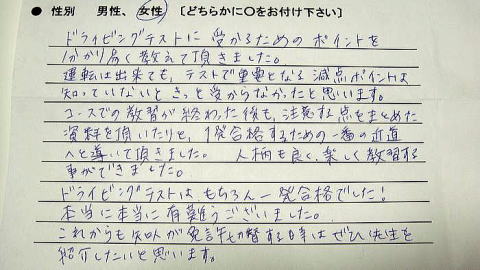 ● 性別　男性、女性　[どちらかに〇をお付け下さい]
ドライビングテストに受かるためのポイントを
分かり易く教えて頂きました。
運転は出来ても、テストで重要となる減点ポイントは
知っていないときっと受からなかったと思います。
コースでの教習が終わった後も、注意する点をまとめた
資料を頂いたりと、1発合格するための一番の近道
へと導いて頂きました。 人柄も良く、楽しく教習する
事ができました。
ドライビングテストは、もちろん一発合格でした!
本当に本当に有難うございました。
これからも知人が免許切替する時はぜひ先生を
紹介したいと思います。